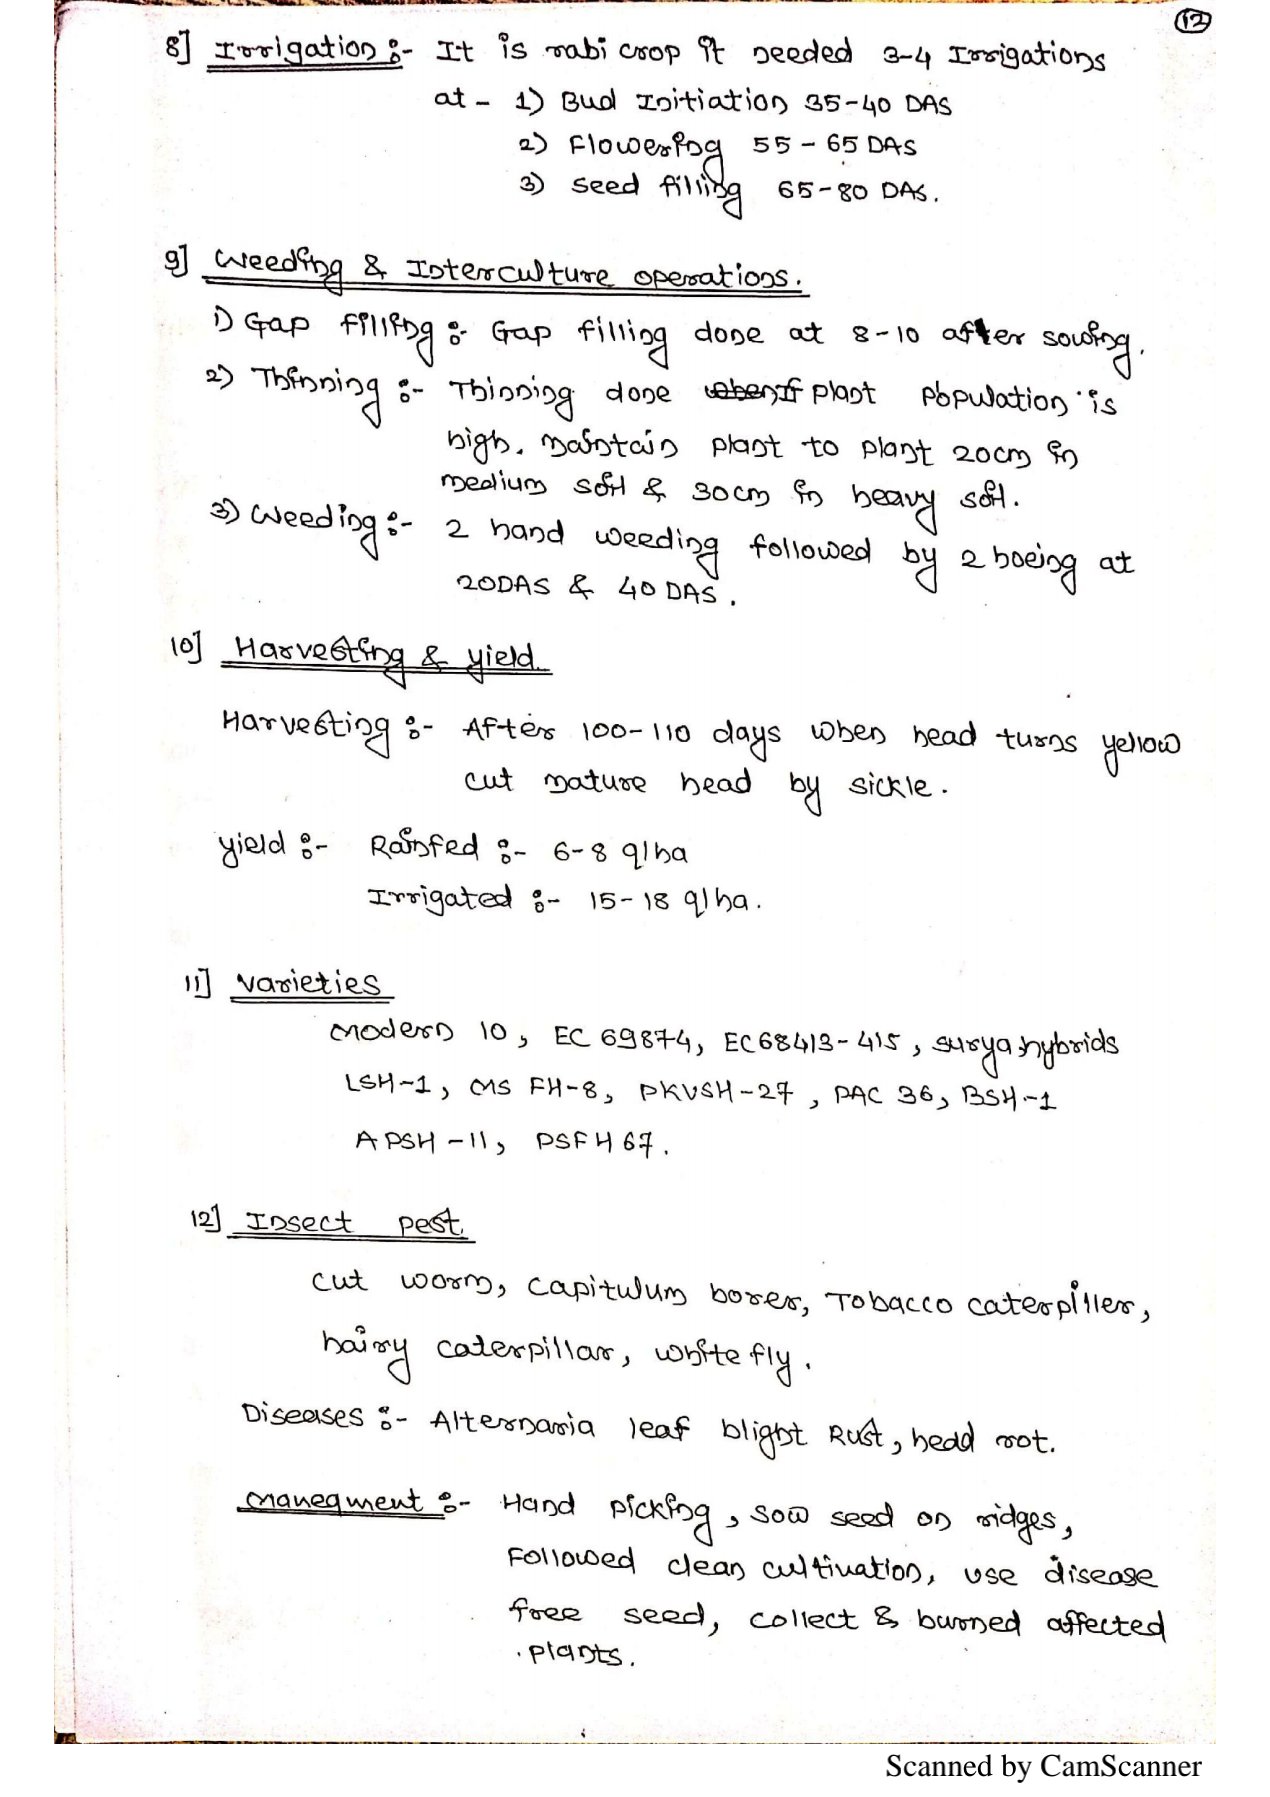 12
8] Irrigation :- It is rabi crop it needed 3-4 Irrigations
at - 1) Bud Initiation 35-40 DAS
2) Flowering 55-65 DAS
3) seed filling 65-80 DAS.
9] Weeding & Interculture operations.
1) Gap filling :- Gap filling done at 8-10 after sowing.
2) Thinning :- Thinning done when If plant population is
high. maintain plant to plant 20cm in
medium soil & 30cm in heavy soil.
3) Weeding :- 2 hand weeding followed by 2 hoeing at
20DAS & 40 DAS.
10] Harvesting & yield.
Harvesting :- After 100-110 days when head turns yellow
cut mature head by sickle.
yield :- Rainfed :- 6-8 q/ha
Irrigated :- 15-18 q/ha.
11] varieties
modern 10, EC 69874, EC68413-415, surya hybrids
LSH-1, MS FH-8, PKVSH-27, PAC 36, BSH-1
APSH-11, PSFH 67.
12] Insect pest.
cut worm, capitulum borer, Tobacco caterpiller,
hairy caterpillar, white fly.
Diseases :- Alternaria leaf blight Rust, head rot.
manegment :- Hand picking, sow seed on ridges,
Followed clean cultivation, use disease
free seed, collect & burned affected
plants.
Scanned by CamScanner